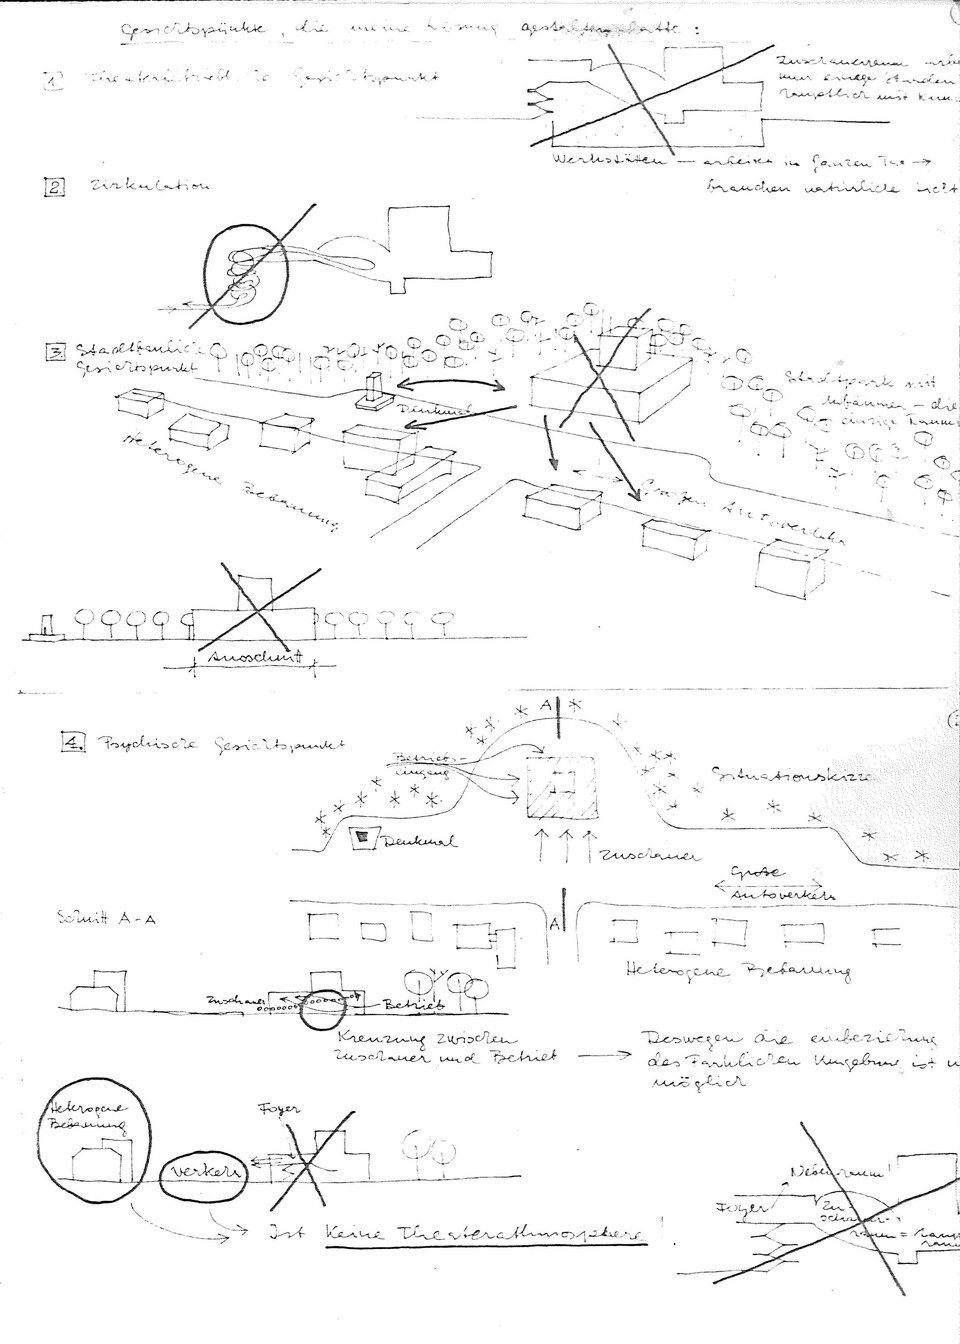 Gesichtspünkte, die meine Lösung gestalten hatte:
1. Gesichtspunkt
Zuschauerraum
nur einige Stunden
Werkstäten — arbeiten in Ganzen Tag →
brauchen natürliche Licht
2. Zirkulation
3. Stadtbauliche
Gesichtspunkt
Denkmal
Stadtpark mit
Heterogene Bebauung
Großen Autoverkehr
Ausschnitt
4. Psychische Gesichtspunkt
A
Betriebs-
eingang
Situationskizze
Denkmal
Zuschauer
Große
Autoverkehr
Schnitt A-A
A
Heterogene Bebauung
Zuschauer
Betrieb
Kreuzung zwischen
Zuschauer und Betrieb →
Deswegen die einbeziehung
des Parklichen Umgebung ist
möglich
Heterogene
Bebauung
Foyer
Verkehr
Nebenraum!
Foyer
Zu-
schauer-
raum =
Ist Keine Theaterathmosphere!